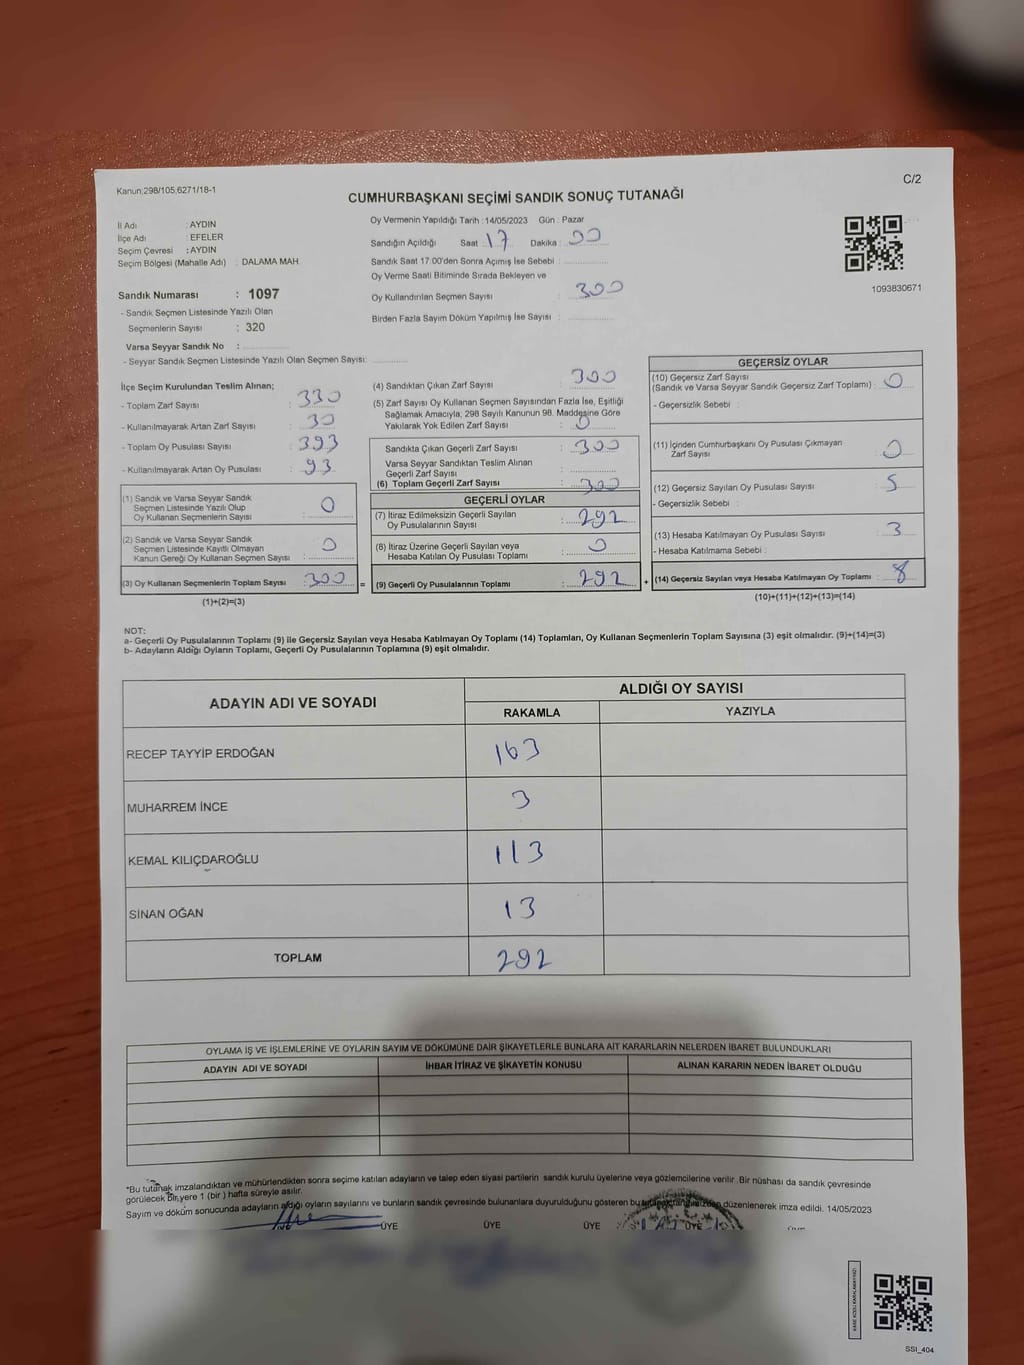 Kanun;298/105,6271/18-1
C/2
CUMHURBAŞKANI SEÇİMİ SANDIK SONUÇ TUTANAĞI
İl Adı : AYDIN
İlçe Adı : EFELER
Seçim Çevresi : AYDIN
Seçim Bölgesi (Mahalle Adı) : DALAMA MAH.
Sandık Numarası : 1097
- Sandık Seçmen Listesinde Yazılı Olan
Seçmenlerin Sayısı : 320
Varsa Seyyar Sandık No :
- Seyyar Sandık Seçmen Listesinde Yazılı Olan Seçmen Sayısı:
Oy Vermenin Yapıldığı Tarih : 14/05/2023 Gün : Pazar
Sandığın Açıldığı Saat 17 Dakika : 00
Sandık Saat 17:00'den Sonra Açımış İse Sebebi :
Oy Verme Saati Bitiminde Sırada Bekleyen ve
Oy Kullandırılan Seçmen Sayısı : 300
Birden Fazla Sayım Döküm Yapılmış İse Sayısı :
1093830671
İlçe Seçim Kurulundan Teslim Alınan;
- Toplam Zarf Sayısı : 330
- Kullanılmayarak Artan Zarf Sayısı : 30
- Toplam Oy Pusulası Sayısı : 393
- Kullanılmayarak Artan Oy Pusulası : 93
(1) Sandık ve Varsa Seyyar Sandık
Seçmen Listesinde Yazılı Olup
Oy Kullanan Seçmenlerin Sayısı : 0
(2) Sandık ve Varsa Seyyar Sandık
Seçmen Listesinde Kayıtlı Olmayan
Kanun Gereği Oy Kullanan Seçmen Sayısı : 0
(3) Oy Kullanan Seçmenlerin Toplam Sayısı : 300 =
(1)+(2)=(3)
(4) Sandıktan Çıkan Zarf Sayısı : 300
(5) Zarf Sayısı Oy Kullanan Seçmen Sayısından Fazla İse, Eşitliği
Sağlamak Amacıyla, 298 Sayılı Kanunun 98. Maddesine Göre
Yakılarak Yok Edilen Zarf Sayısı : 0
Sandıkta Çıkan Geçerli Zarf Sayısı : 300
Varsa Seyyar Sandıktan Teslim Alınan
Geçerli Zarf Sayısı :
(6) Toplam Geçerli Zarf Sayısı : 300
GEÇERLİ OYLAR
(7) İtiraz Edilmeksizin Geçerli Sayılan
Oy Pusulalarının Sayısı : 292
(8) İtiraz Üzerine Geçerli Sayılan veya
Hesaba Katılan Oy Pusulası Toplamı : 0
(9) Geçerli Oy Pusulalarının Toplamı : 292 +
GEÇERSİZ OYLAR
(10) Geçersiz Zarf Sayısı
(Sandık ve Varsa Seyyar Sandık Geçersiz Zarf Toplamı) : 0
- Geçersizlik Sebebi :
(11) İçinden Cumhurbaşkanı Oy Pusulası Çıkmayan
Zarf Sayısı : 0
(12) Geçersiz Sayılan Oy Pusulası Sayısı : 5
- Geçersizlik Sebebi :
(13) Hesaba Katılmayan Oy Pusulası Sayısı : 3
- Hesaba Katılmama Sebebi :
(14) Geçersiz Sayılan veya Hesaba Katılmayan Oy Toplamı : 8
(10)+(11)+(12)+(13)=(14)
NOT:
a- Geçerli Oy Pusulalarının Toplamı (9) ile Geçersiz Sayılan veya Hesaba Katılmayan Oy Toplamı (14) Toplamları, Oy Kullanan Seçmenlerin Toplam Sayısına (3) eşit olmalıdır. (9)+(14)=(3)
b- Adayların Aldığı Oyların Toplamı, Geçerli Oy Pusulalarının Toplamına (9) eşit olmalıdır.
ADAYIN ADI VE SOYADI
ALDIĞI OY SAYISI
RAKAMLA YAZIYLA
RECEP TAYYİP ERDOĞAN 163
MUHARREM İNCE 3
KEMAL KILIÇDAROĞLU 113
SİNAN OĞAN 13
TOPLAM 292
OYLAMA İŞ VE İŞLEMLERİNE VE OYLARIN SAYIM VE DÖKÜMÜNE DAİR ŞİKAYETLERLE BUNLARA AİT KARARLARIN NELERDEN İBARET BULUNDUKLARI
ADAYIN ADI VE SOYADI İHBAR İTİRAZ VE ŞİKAYETİN KONUSU ALINAN KARARIN NEDEN İBARET OLDUĞU
*Bu tutanak imzalandıktan ve mühürlendikten sonra seçime katılan adayların ve talep eden siyasi partilerin sandık kurulu üyelerine veya gözlemcilerine verilir .Bir nüshası da sandık çevresinde
görülecek bir yere 1 (bir ) hafta süreyle asılır.
Sayım ve döküm sonucunda adayların aldığı oyların sayılarını ve bunların sandık çevresinde bulunanlara duyurulduğunu gösteren bu düzenlenerek imza edildi. 14/05/2023
ÜYE ÜYE ÜYE ÜYE
SSI_404